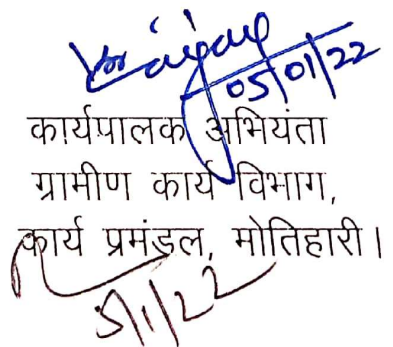 05/01/22
कार्यपालक अभियंता
ग्रामीण कार्य विभाग,
कार्य प्रमंडल, मोतिहारी।
5/1/22